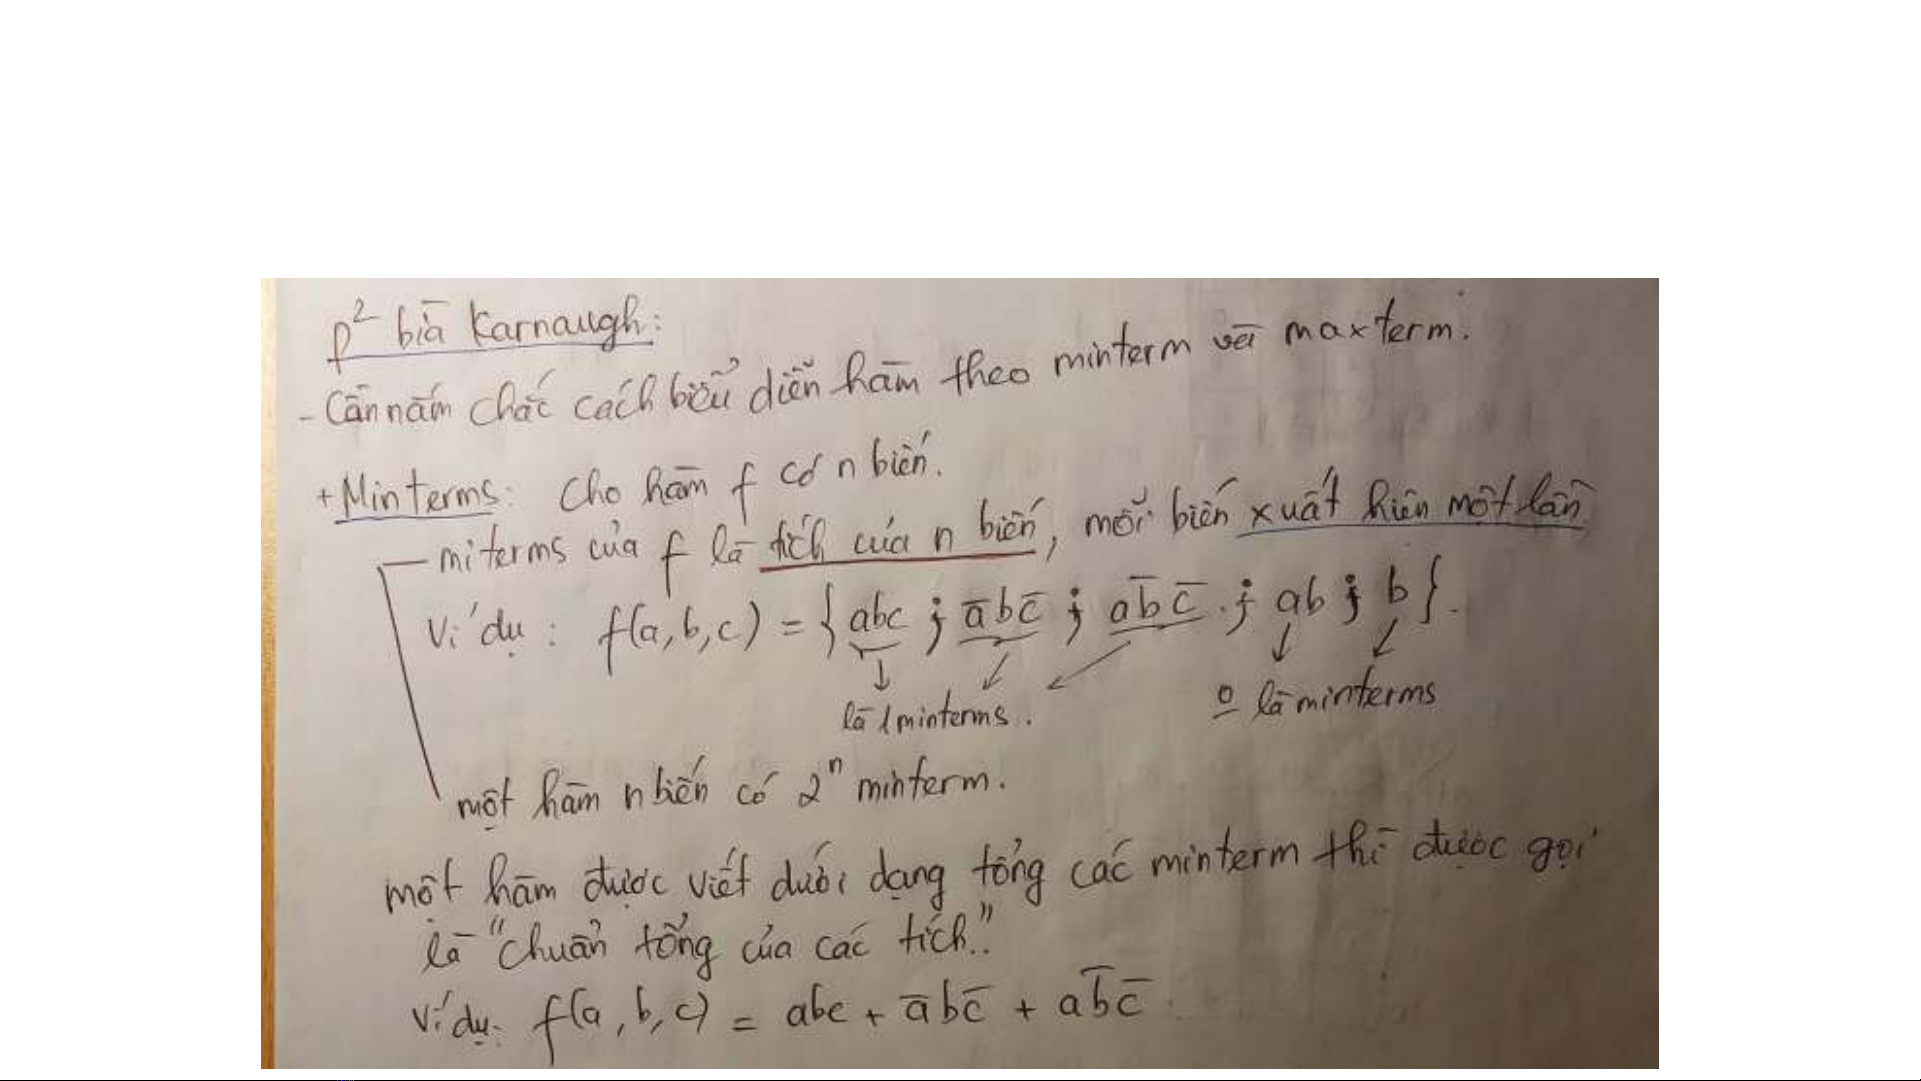 p² bìa Karnaugh:
- Cần nắm chắc cách biểu diễn hàm theo minterm và maxterm.
+ Minterms: Cho hàm f có n biến.
miterms của f là tích của n biến, mỗi biến xuất hiện một lần
Ví dụ: f(a,b,c) = {abc ; a̅bc̅ ; ab̅c̅ ; ab ; b}.
là 1 minterms. o là minterms
một hàm n biến có 2ⁿ minterm.
một hàm được viết dưới dạng tổng các minterm thì được gọi
là "chuẩn tổng của các tích."
Ví dụ: f(a,b,c) = abc + a̅bc̅ + ab̅c̅